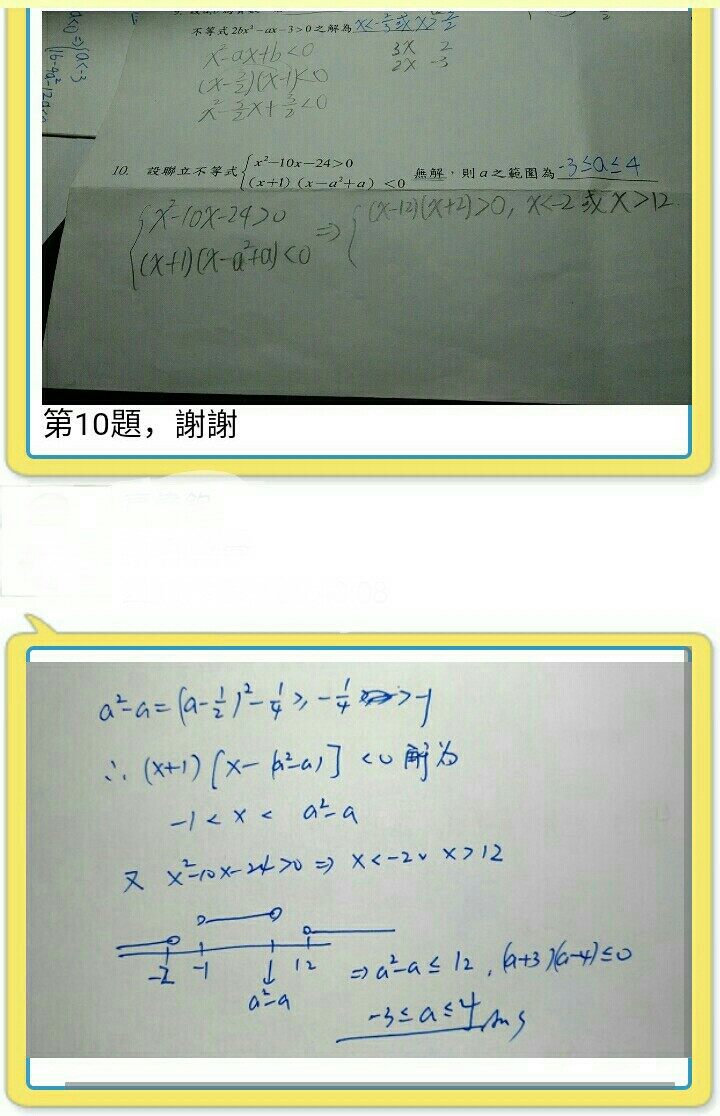 不等式2bx²-ax-3>0之解為 x<-2/3或x>3/2
x²-ax+b<0
(x-3/2)(x-1)<0
x²-5/2x+3/2<0
3x 2
2x -3
10. 設聯立不等式{x²-10x-24>0
(x+1)(x-a²+a)<0 無解,則a之範圍為 -3≤a≤4
{x²-10x-24>0
(x+1)(x-a²+a)<0 ⇒ {(x-12)(x+2)>0, x<-2或x>12
第10題,謝謝
a²-a=(a-1/2)²-1/4≥-1/4>-1
∴(x+1)[x-(a²-a)]<0解為
-1<x<a²-a
又 x²-10x-24>0⇒x<-2∨x>12
-2 -1 a²-a 12
⇒a²-a≤12,(a+3)(a-4)≤0
-3≤a≤4 Ans